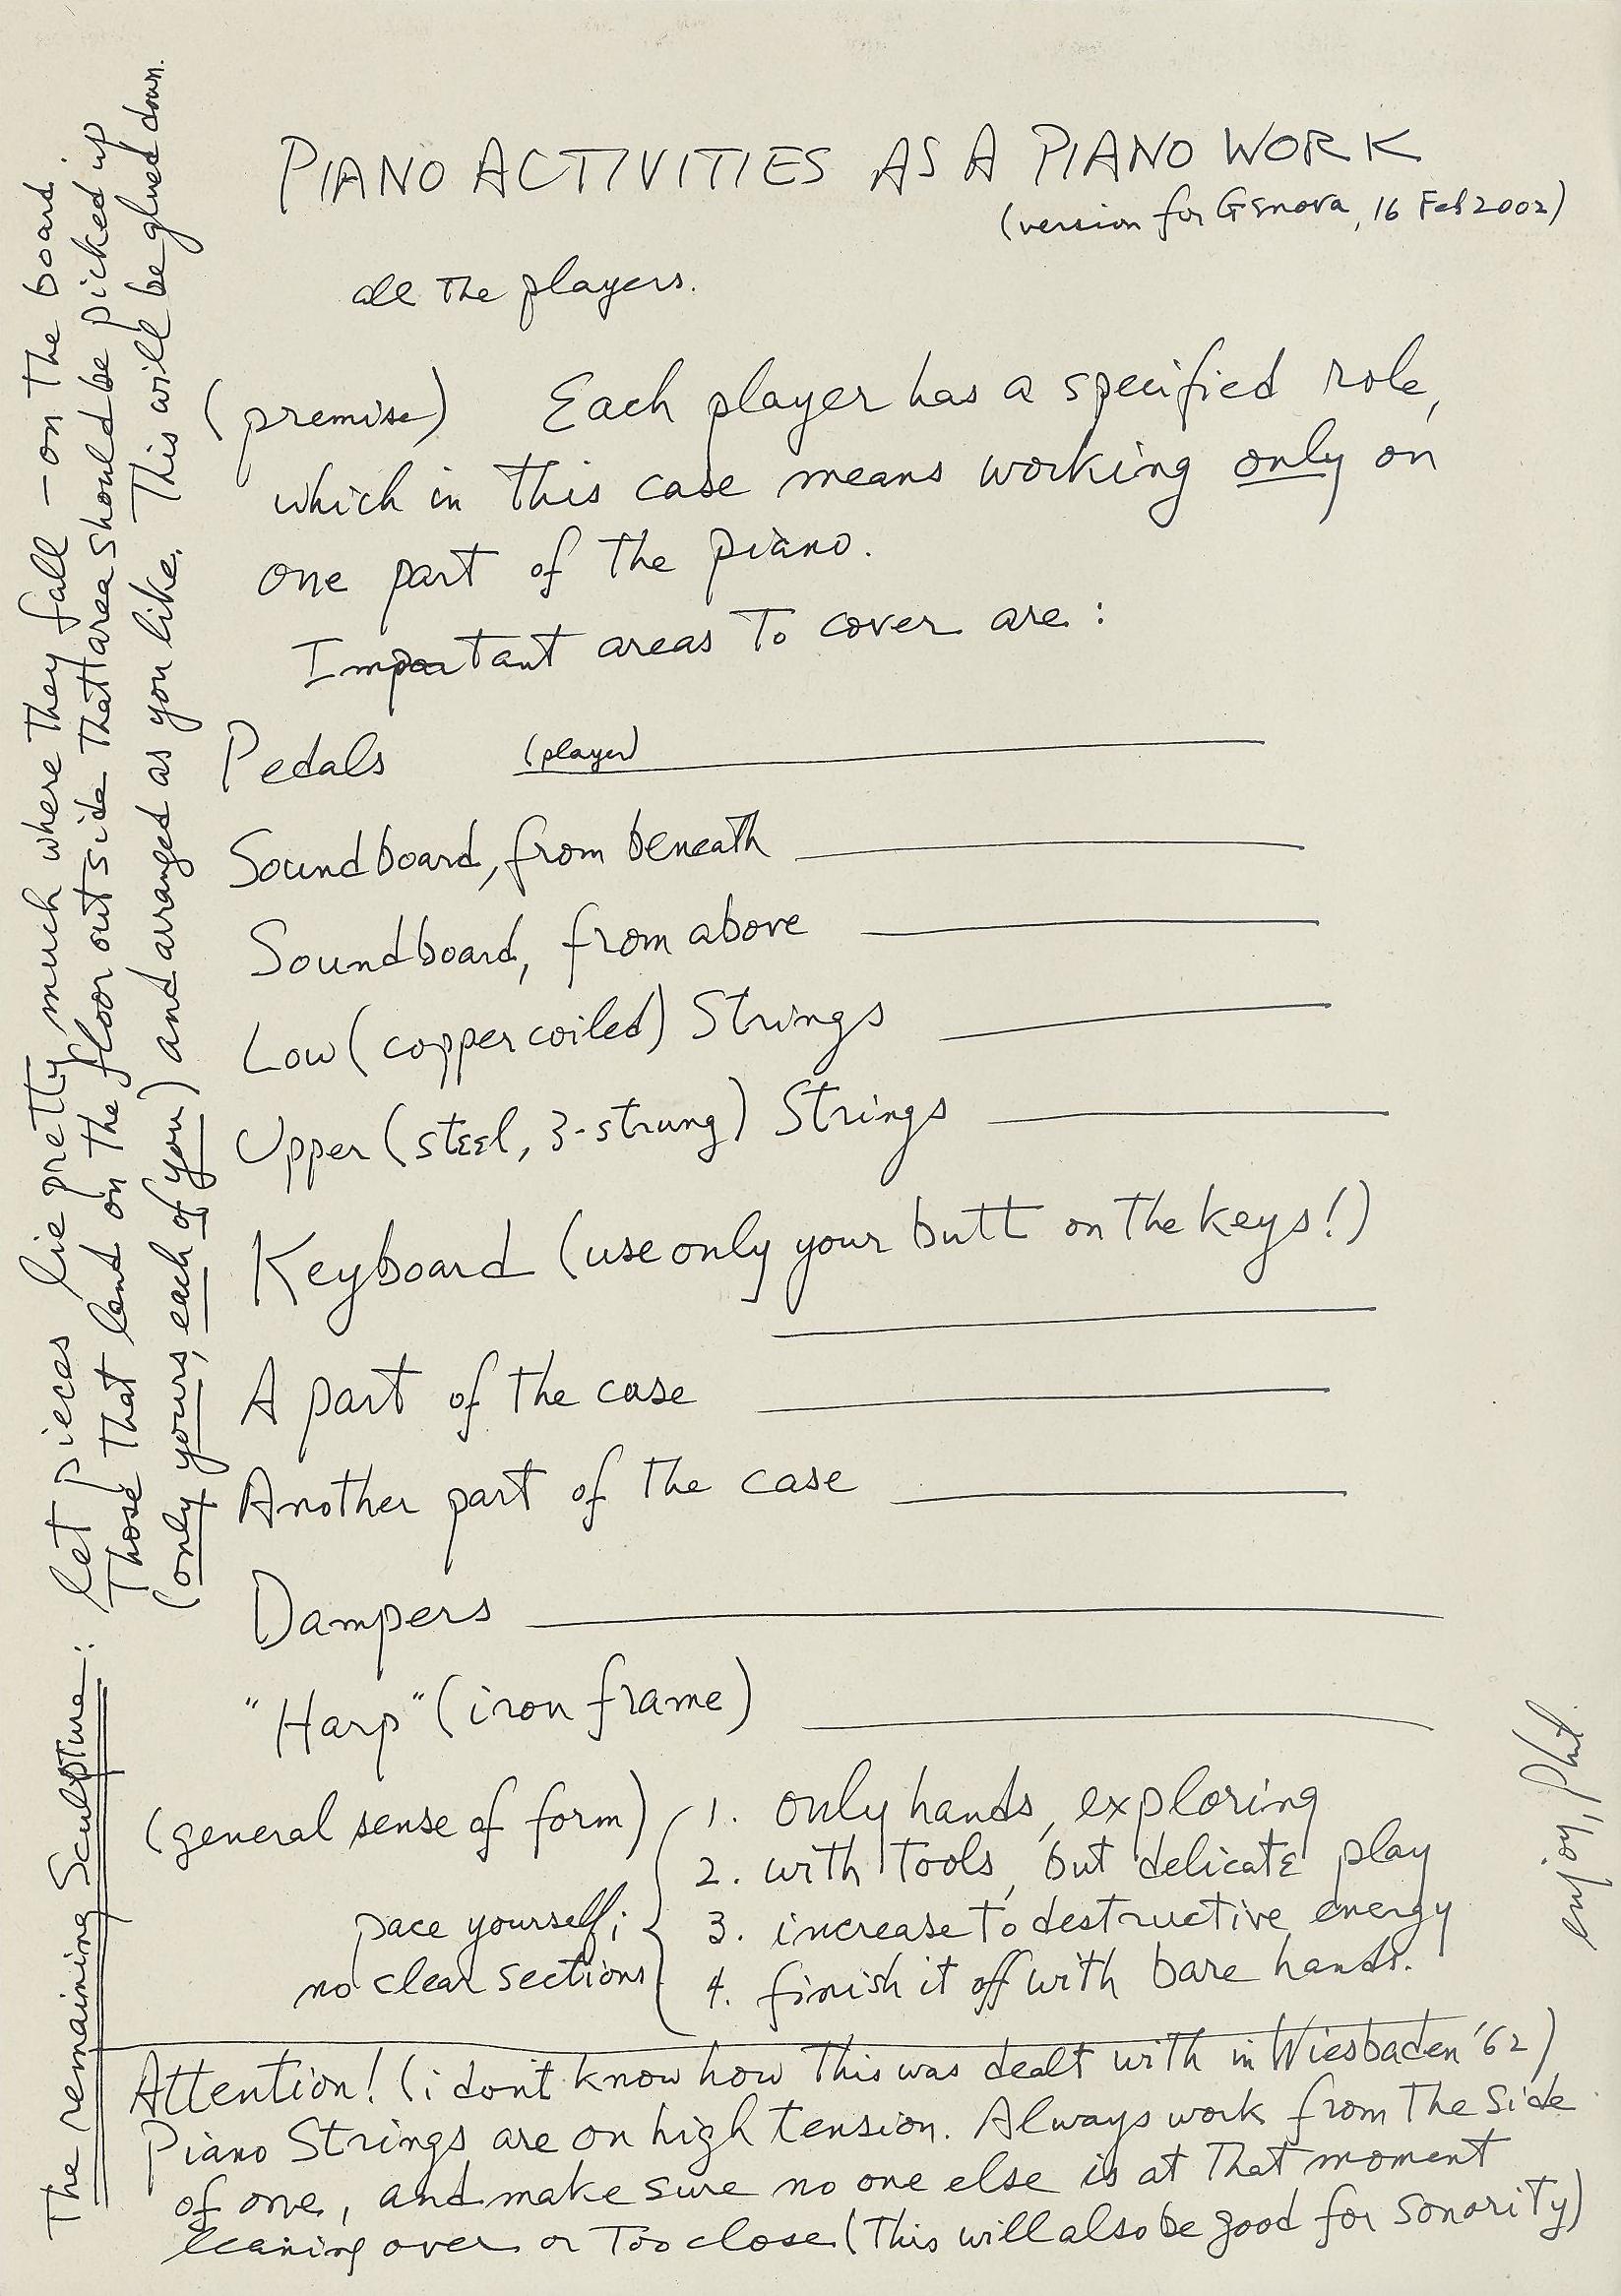 PIANO ACTIVITIES AS A PIANO WORK
(version for Genova, 16 Feb 2002)
all the players.
(premise) Each player has a specified role,
which in this case means working only on
one part of the piano.
Important areas to cover are:
Pedals (player)
Soundboard, from beneath
Soundboard, from above
Low (copper coiled) Strings
Upper (steel, 3-strung) Strings
Keyboard (use only your butt on the keys!)
A part of the case
Another part of the case
Dampers
"Harp" (iron frame)
(general sense of form)
pace yourself;
no clear sections
1. only hands, exploring
2. with tools, but delicate play
3. increase to destructive energy
4. finish it off with bare hands.
Attention! (i don't know how this was dealt with in Wiesbaden '62)
Piano Strings are on high tension. Always work from the side
of one, and make sure no one else is at that moment
leaning over or too close (This will also be good for sonority)
The remaining Sculpture: let pieces lie pretty much where they fall – on the board.
Those that land on the floor outside that area should be picked up
(only yours, each of you) and arranged as you like. This will be glued down.
enjoy, Phil.